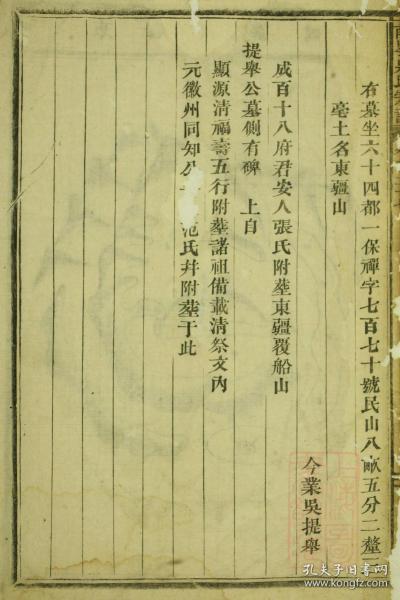 右墓坐六十四都一保禪字七百七十號民山八畝五分二釐
毫土名東疆山
今業吳提舉
成百十八府君安人張氏附葬東疆覆船山
提舉公墓側有碑 上自
顯源清福壽五行附葬諸祖備載清祭文內
元徽州同知公 范氏幷附葬于此
孔夫子旧书网
www.kongfz.com